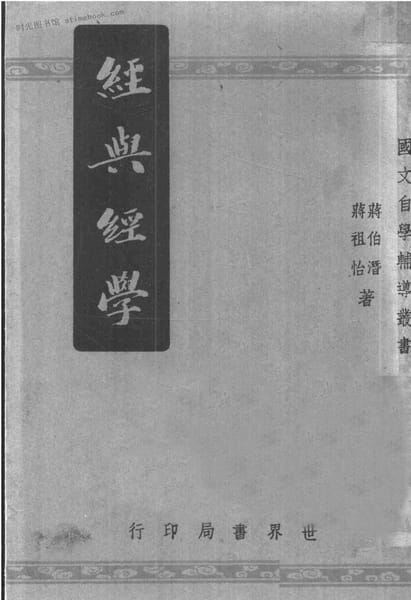 时光图书馆 atimebook.com
國文自學輔導叢書
蔣伯潛
蔣祖怡
著
經與經學
世界書局印行